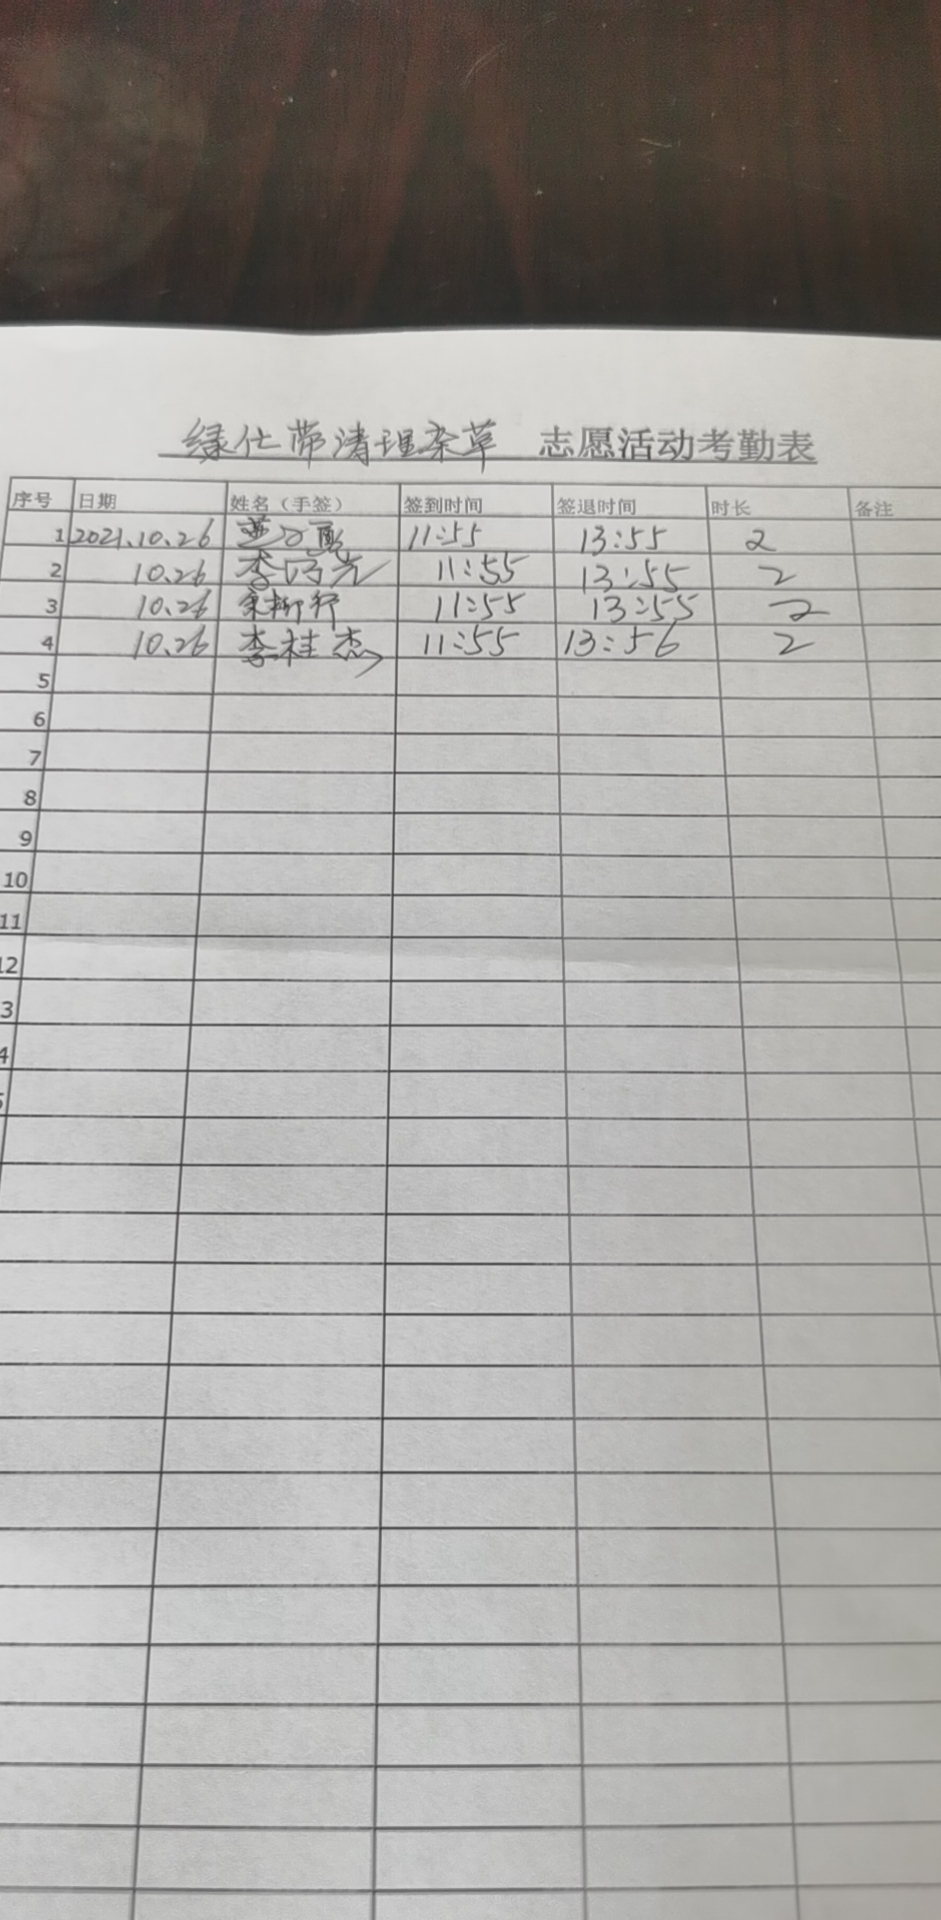 绿化带清理杂草 志愿活动考勤表
序号 日期 姓名（手签） 签到时间 签退时间 时长 备注
1 2021.10.26 11:55 13:55 2
2 10.26 李 光 11:55 13:55 2
3 10.26 11:55 13:55 2
4 10.26 李桂杰 11:55 13:56 2
5
6
7
8
9
10
11
12
3
4
5